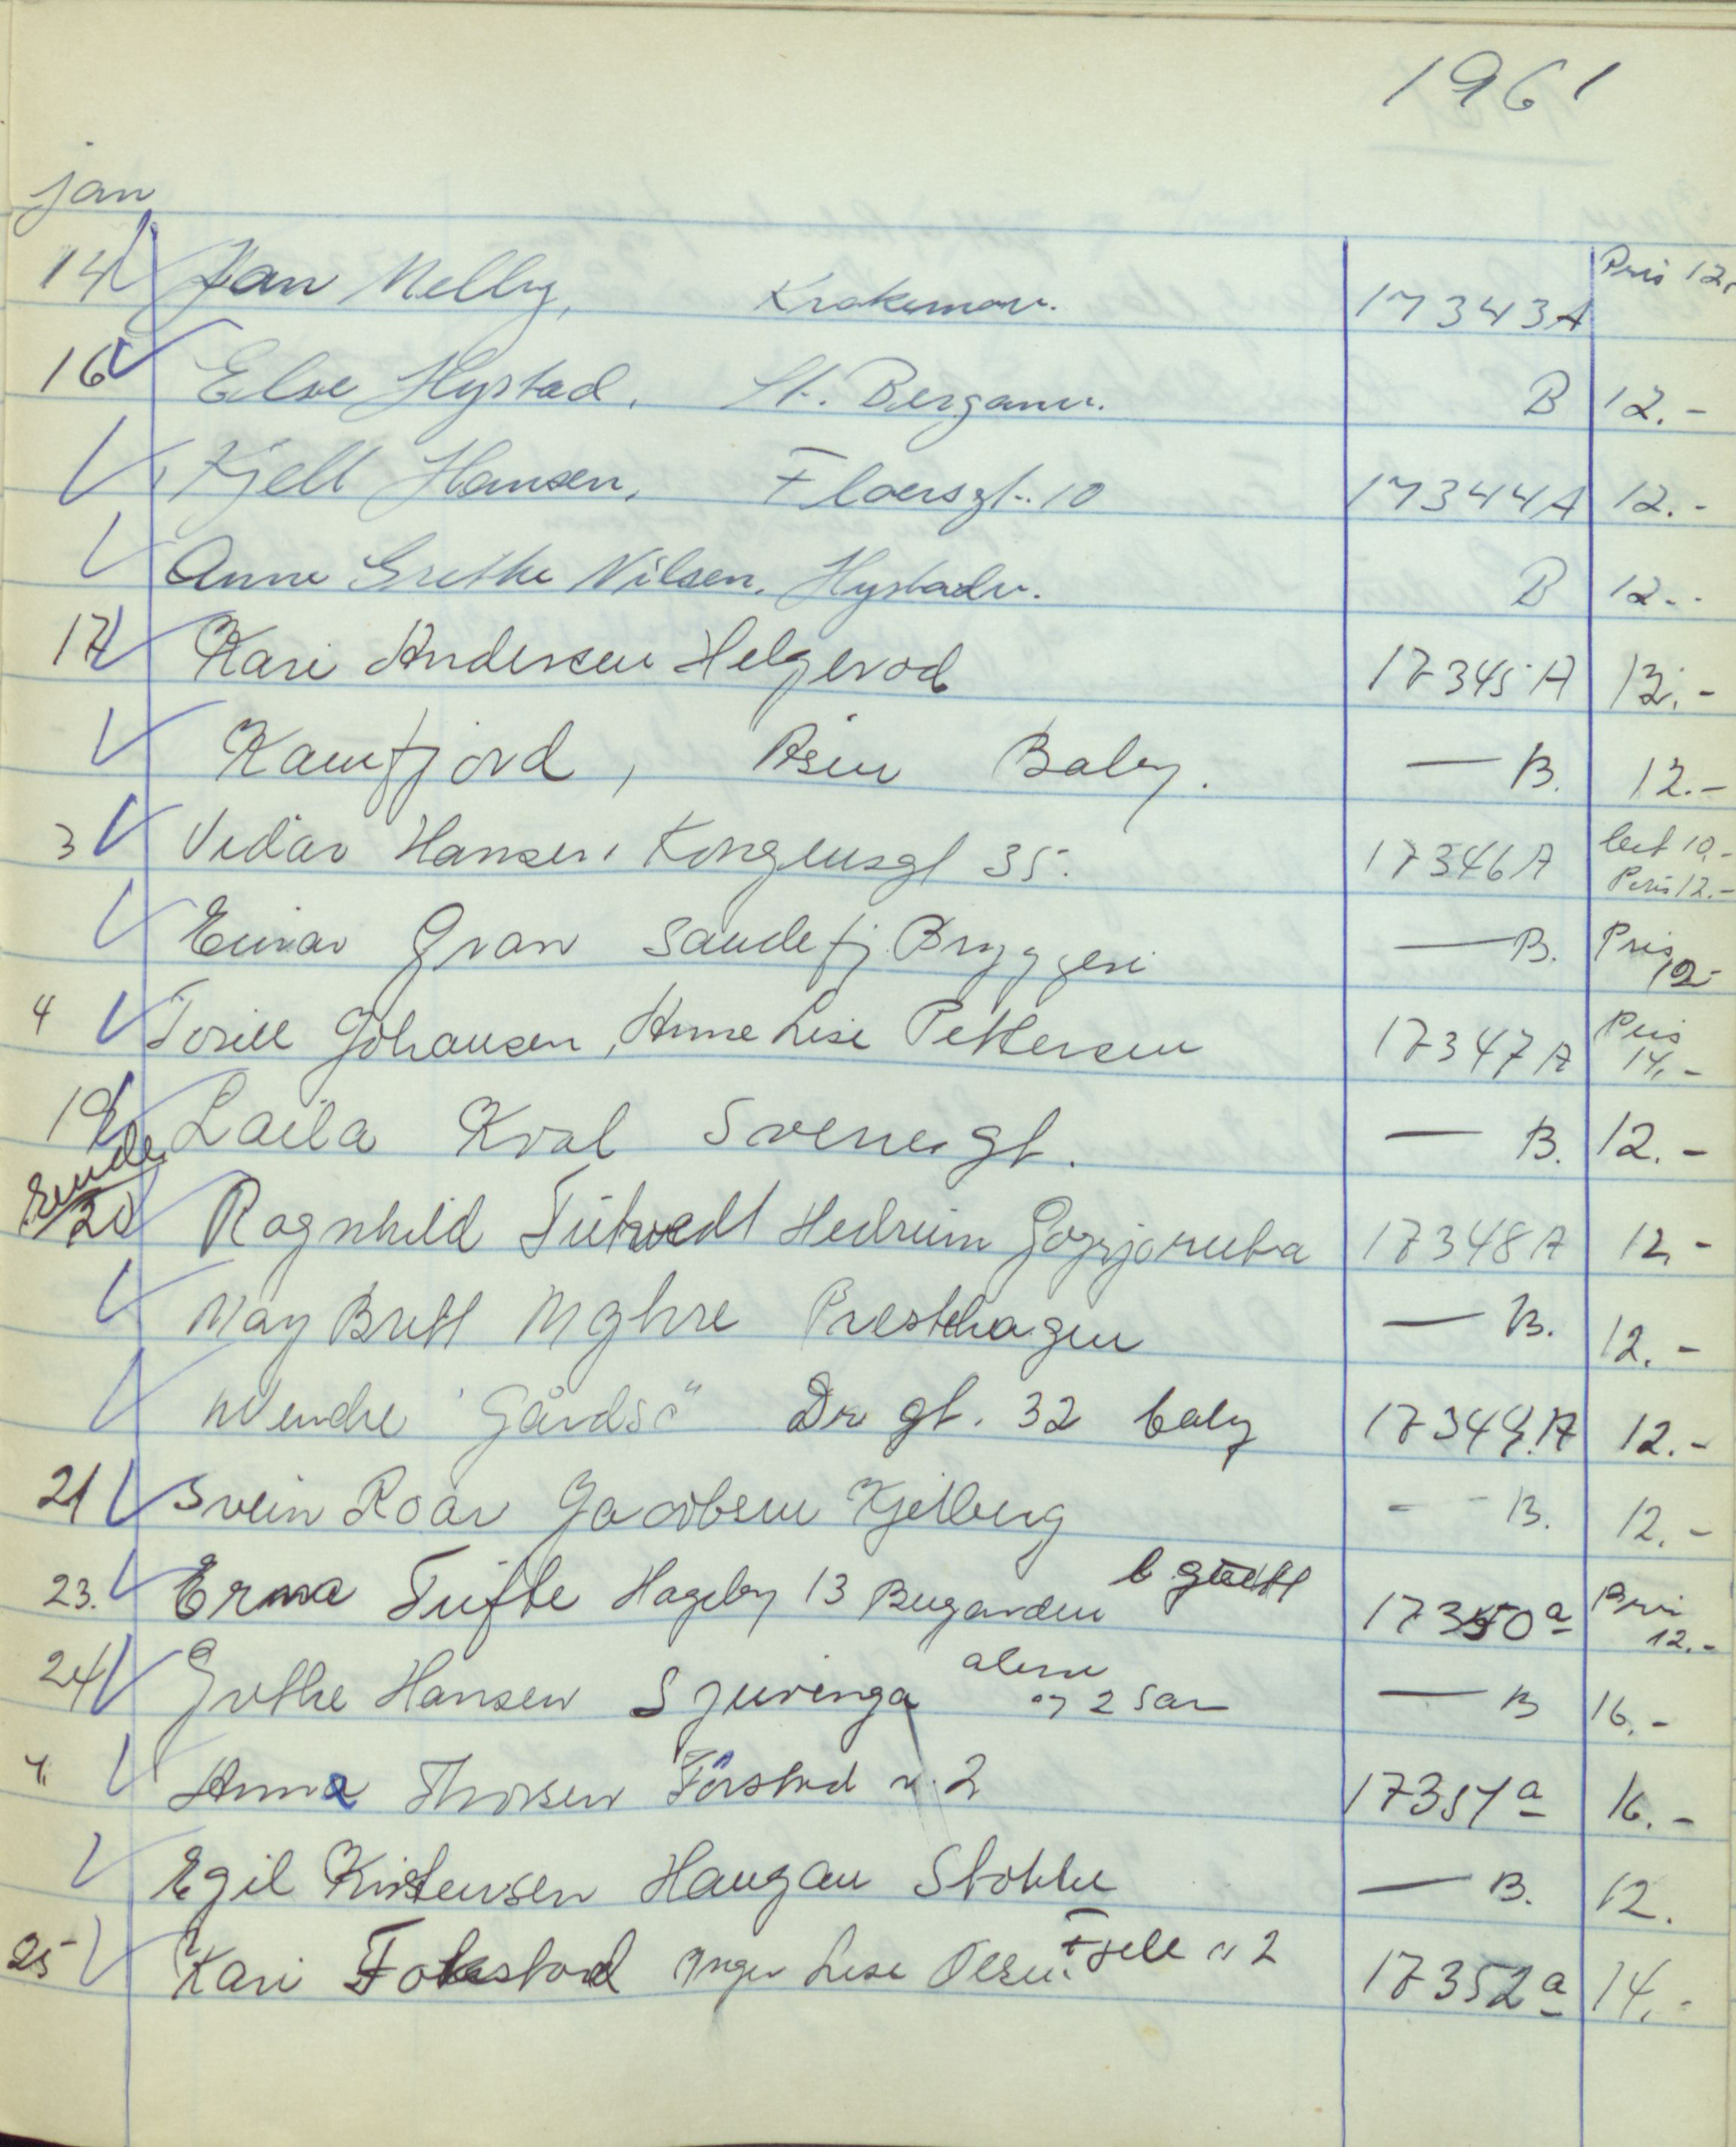 1961
jan
14 Jan Melby, Krokemov. 17343A Pris 12,
16 Else Hystad. St. Berganv. B 12.-
Kjell Hansen, Floersgt. 10 17344A 12.-
Anne Grethe Nilsen. Hystadv. B 12.-
17 Kari Andersen Helgerod 17345A 12.-
Kamfjord, Åsen Baby. — B. 12.-
3 Vidar Hansen, Kongensgt 35. 17346A bet 10,- Pris 12.-
Einar Gran Sandefj. Bryggeri — B. Pris 12-
4 Torill Johansen, Anne Lise Pettersen 17347A Pris 14,-
19 Laila Kval Sverresgt. — B. 12.-
20 Ragnhild Tutvedt Hedrum 17348A 12,-
May Britt Myhre Presthagen — B. 12.-
Wenche Gårdsö Dr gt. 32 baby 17349.A 12.-
21 Svein Roar Jacobsen Kjelberg - - B. 12.-
23. Erna Tufte Hageby 13 Bugarden 17350a Pris 12.-
24 Grethe Hansen alene og 2 sam — B 16.-
Anna Thorsen v. 2 17351a 16.-
Egil Kristensen Haugan Stokke — B. 12.
25 Kari Fokestad Inger Lise Olsen. Fjell v 2 17352a 14.-